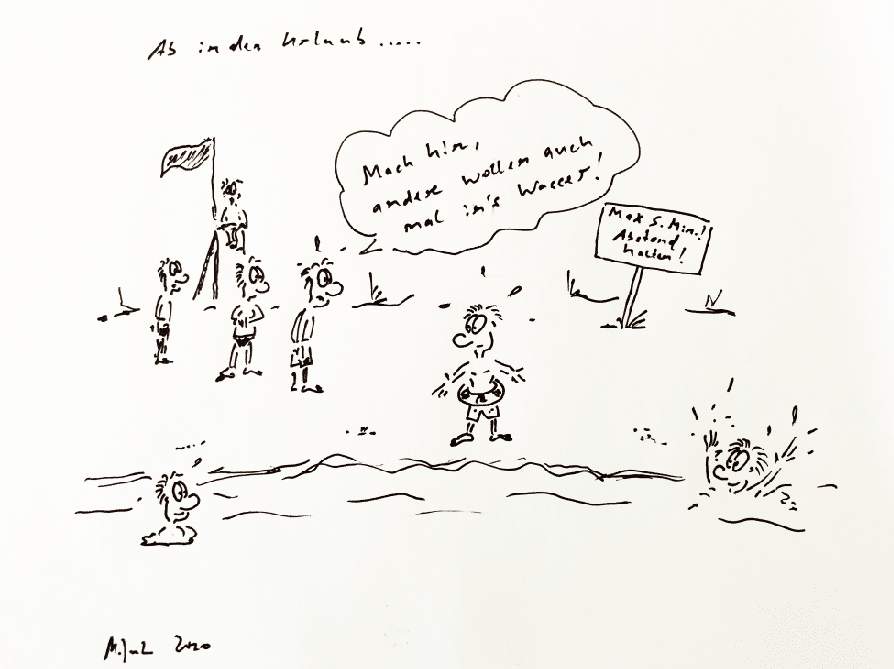 Ab in den Urlaub.....
Mach hin,
andere wollen auch
mal in's Wasser!
Max 5. Min.!
Abstand
halten!
2020